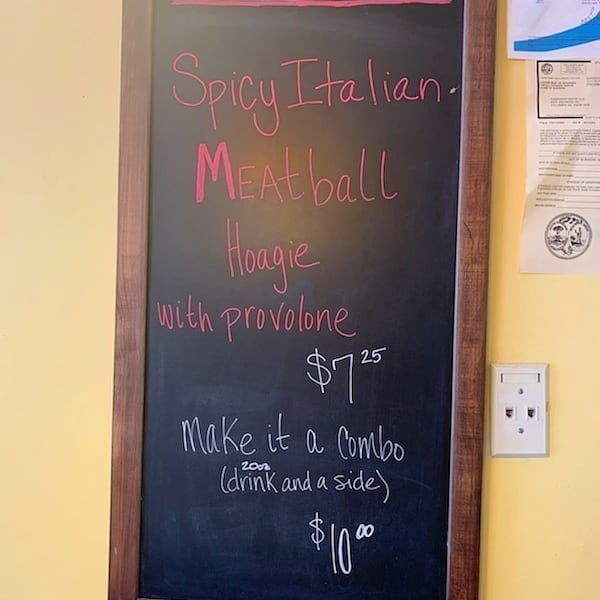 Spicy Italian
MEAtball
Hoagie
with provolone
$7 25
Make it a Combo
20oz
(drink and a side)
$10 00